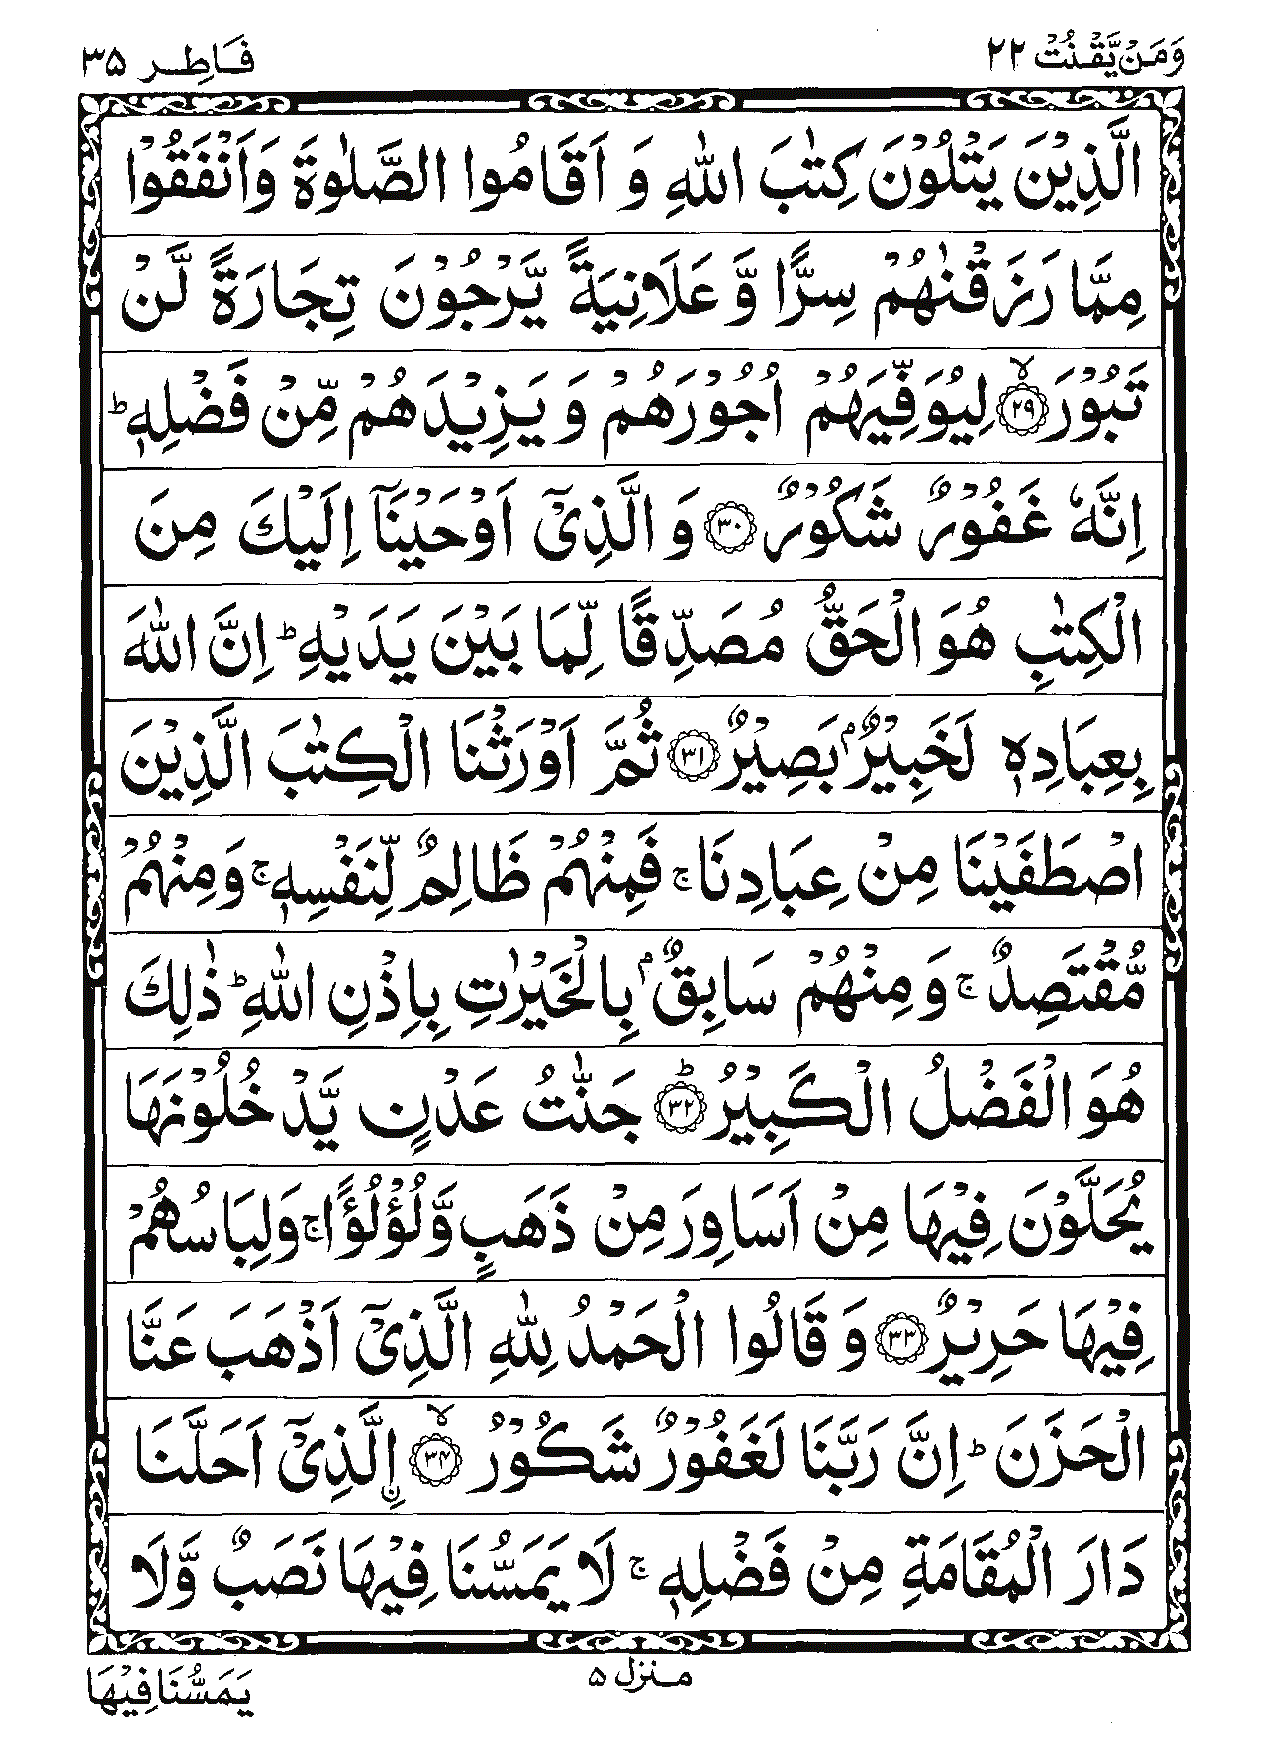 وَمَنْ يَّقْنُتْ ٢٢
فَاطِر ٣۵
الَّذِيْنَ يَتْلُوْنَ كِتٰبَ اللّٰهِ وَ اَقَامُوا الصَّلٰوةَ وَاَنْفَقُوْا
مِمَّا رَزَقْنٰهُمْ سِرًّا وَّ عَلَانِيَةً يَّرْجُوْنَ تِجَارَةً لَّنْ
تَبُوْرَ ۙ﴿٢٩﴾ لِيُوَفِّيَهُمْ اُجُوْرَهُمْ وَ يَزِيْدَهُمْ مِّنْ فَضْلِهٖ ؕ
اِنَّهٗ غَفُوْرٌ شَكُوْرٌ ﴿٣٠﴾ وَ الَّذِيْۤ اَوْحَيْنَاۤ اِلَيْكَ مِنَ
الْكِتٰبِ هُوَ الْحَقُّ مُصَدِّقًا لِّمَا بَيْنَ يَدَيْهِ ؕ اِنَّ اللّٰهَ
بِعِبَادِهٖ لَخَبِيْرٌۢ بَصِيْرٌ ﴿٣١﴾ ثُمَّ اَوْرَثْنَا الْكِتٰبَ الَّذِيْنَ
اصْطَفَيْنَا مِنْ عِبَادِنَا ۚ فَمِنْهُمْ ظَالِمٌ لِّنَفْسِهٖ ۚ وَمِنْهُمْ
مُّقْتَصِدٌ ۚ وَمِنْهُمْ سَابِقٌۢ بِالْخَيْرٰتِ بِاِذْنِ اللّٰهِ ؕ ذٰلِكَ
هُوَ الْفَضْلُ الْكَبِيْرُ ؕ﴿٣٢﴾ جَنّٰتُ عَدْنٍ يَّدْخُلُوْنَهَا
يُحَلَّوْنَ فِيْهَا مِنْ اَسَاوِرَ مِنْ ذَهَبٍ وَّلُؤْلُؤًا ۚ وَلِبَاسُهُمْ
فِيْهَا حَرِيْرٌ ﴿٣٣﴾ وَ قَالُوا الْحَمْدُ لِلّٰهِ الَّذِيْۤ اَذْهَبَ عَنَّا
الْحَزَنَ ؕ اِنَّ رَبَّنَا لَغَفُوْرٌ شَكُوْرُ ۙ﴿٣۴﴾ اِ۟لَّذِيْۤ اَحَلَّنَا
دَارَ الْمُقَامَةِ مِنْ فَضْلِهٖ ۚ لَا يَمَسُّنَا فِيْهَا نَصَبٌ وَّلَا
منزل ۵
يَمَسُّنَا فِيْهَا